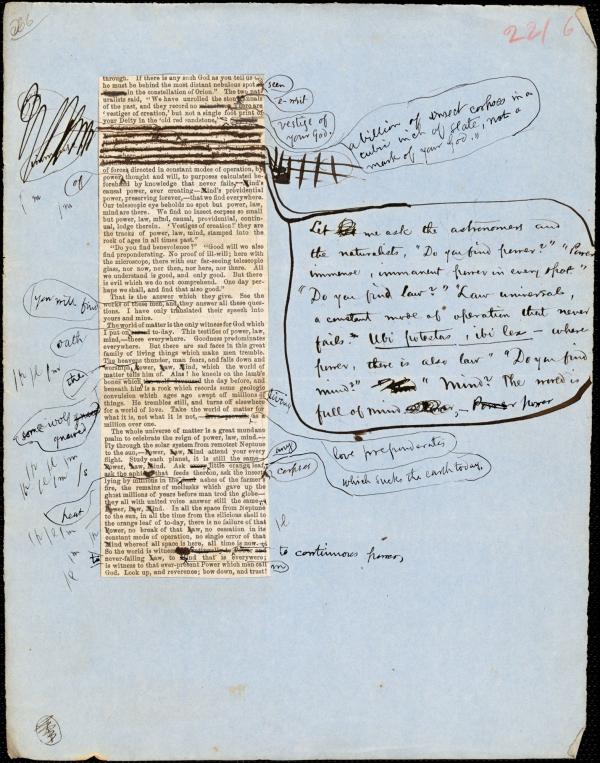 236
22/6
through. If there is any such God as you tell us of
he must be behind the most distant nebulous spot
in the constellation of Orion." The two nat-
uralists said, "We have unrolled the stony annals
of the past, and they record no There are
'vestiges of creation,' but not a single foot print of
your Deity in the 'old red sandstone,'
of forces directed in constant modes of operation, by
power, thought and will, to purposes calculated be-
forehand by knowledge that never fails,—Mind's
causal power, ever creating—Mind's providential
power, preserving forever,—that we find everywhere.
Our telescopic eye beholds no spot but power, law,
mind are there. We find no insect corpses so small
but power, law, mind, causal, providential, contin-
ual, lodge therein. 'Vestiges of creation!' they are
the tracks of power, law, mind, stamped into the
rock of ages in all times past."
"Do you find benevolence?" "Good will we also
find preponderating. No proof of ill-will; here with
the microscope, there with our far-seeing telescopic
glass, nor now, nor then, nor here, nor there. All
we understand is good, and only good. But there
is evil which we do not comprehend. One day per-
haps we shall, and find that also good."
That is the answer which they give. See the
works of these men, and they answer all these ques-
tions. I have only translated their speech into
yours and mine.
The world of matter is the only witness for God which
I put on to-day. This testifies of power, law,
mind,—these everywhere. Goodness predominates
everywhere. But there are sad faces in this great
family of living things which make men tremble.
The heavens thunder, man fears, and falls down and
worships, Power, Law, Mind, which the world of
matter tells him of. Alas! he kneels on the lamb's
bones which the day before, and
beneath him is a rock which records some geologic
convulsion which ages ago swept off millions of
things. He trembles still, and turns off elsewhere
for a world of love. Take the world of matter for
what it is, not what it is not, as a
million over one.
The whole universe of matter is a great mundane
psalm to celebrate the reign of power, law, mind.—
Fly through the solar system from remotest Neptune
to the sun,—Power, Law, Mind attend your every
flight. Study each planet, it is still the same—
Power, Law, Mind. Ask little orange leaf,
ask the aphis that feeds thereon, ask the insect
lying by millions in the ashes of the farmer's
fire, the remains of mollusks which gave up the
ghost millions of years before man trod the globe—
they all with united voice answer still the same—
Power, Law, Mind. In all the space from Neptune
to the sun, in all the time from the silicious shell to
the orange leaf of to-day, there is no failure of that
Power, no break of that Law, no cessation in its
constant mode of operation, no single error of that
Mind whereof all space is here, all time is now.
So the world is witness
never-failing Law, to Mind that is everywere;
is witness to that ever-present Power which men call
God. Look up, and reverence; bow down, and trust!
seen
vestige of
your God.
a billion of insect corpses in a
cubic inch of slate, not a
mark of your God."
Let me ask the astronomers and
the naturalists, "Do you find power?" "Power
immense, immanent power in every spot"
"Do you find law?" "Law universal,
a constant mode of operation that never
fails." Ubi potestas, ibi lex – where
power, there is also law" "Do you find
mind?" "Mind? The world is
full of mind – power
of
you will find
oath
the
some wolf
gnawed
heat
living
any
corpses
love preponderates
which sucks the earth today,
to continuous power,
to
m